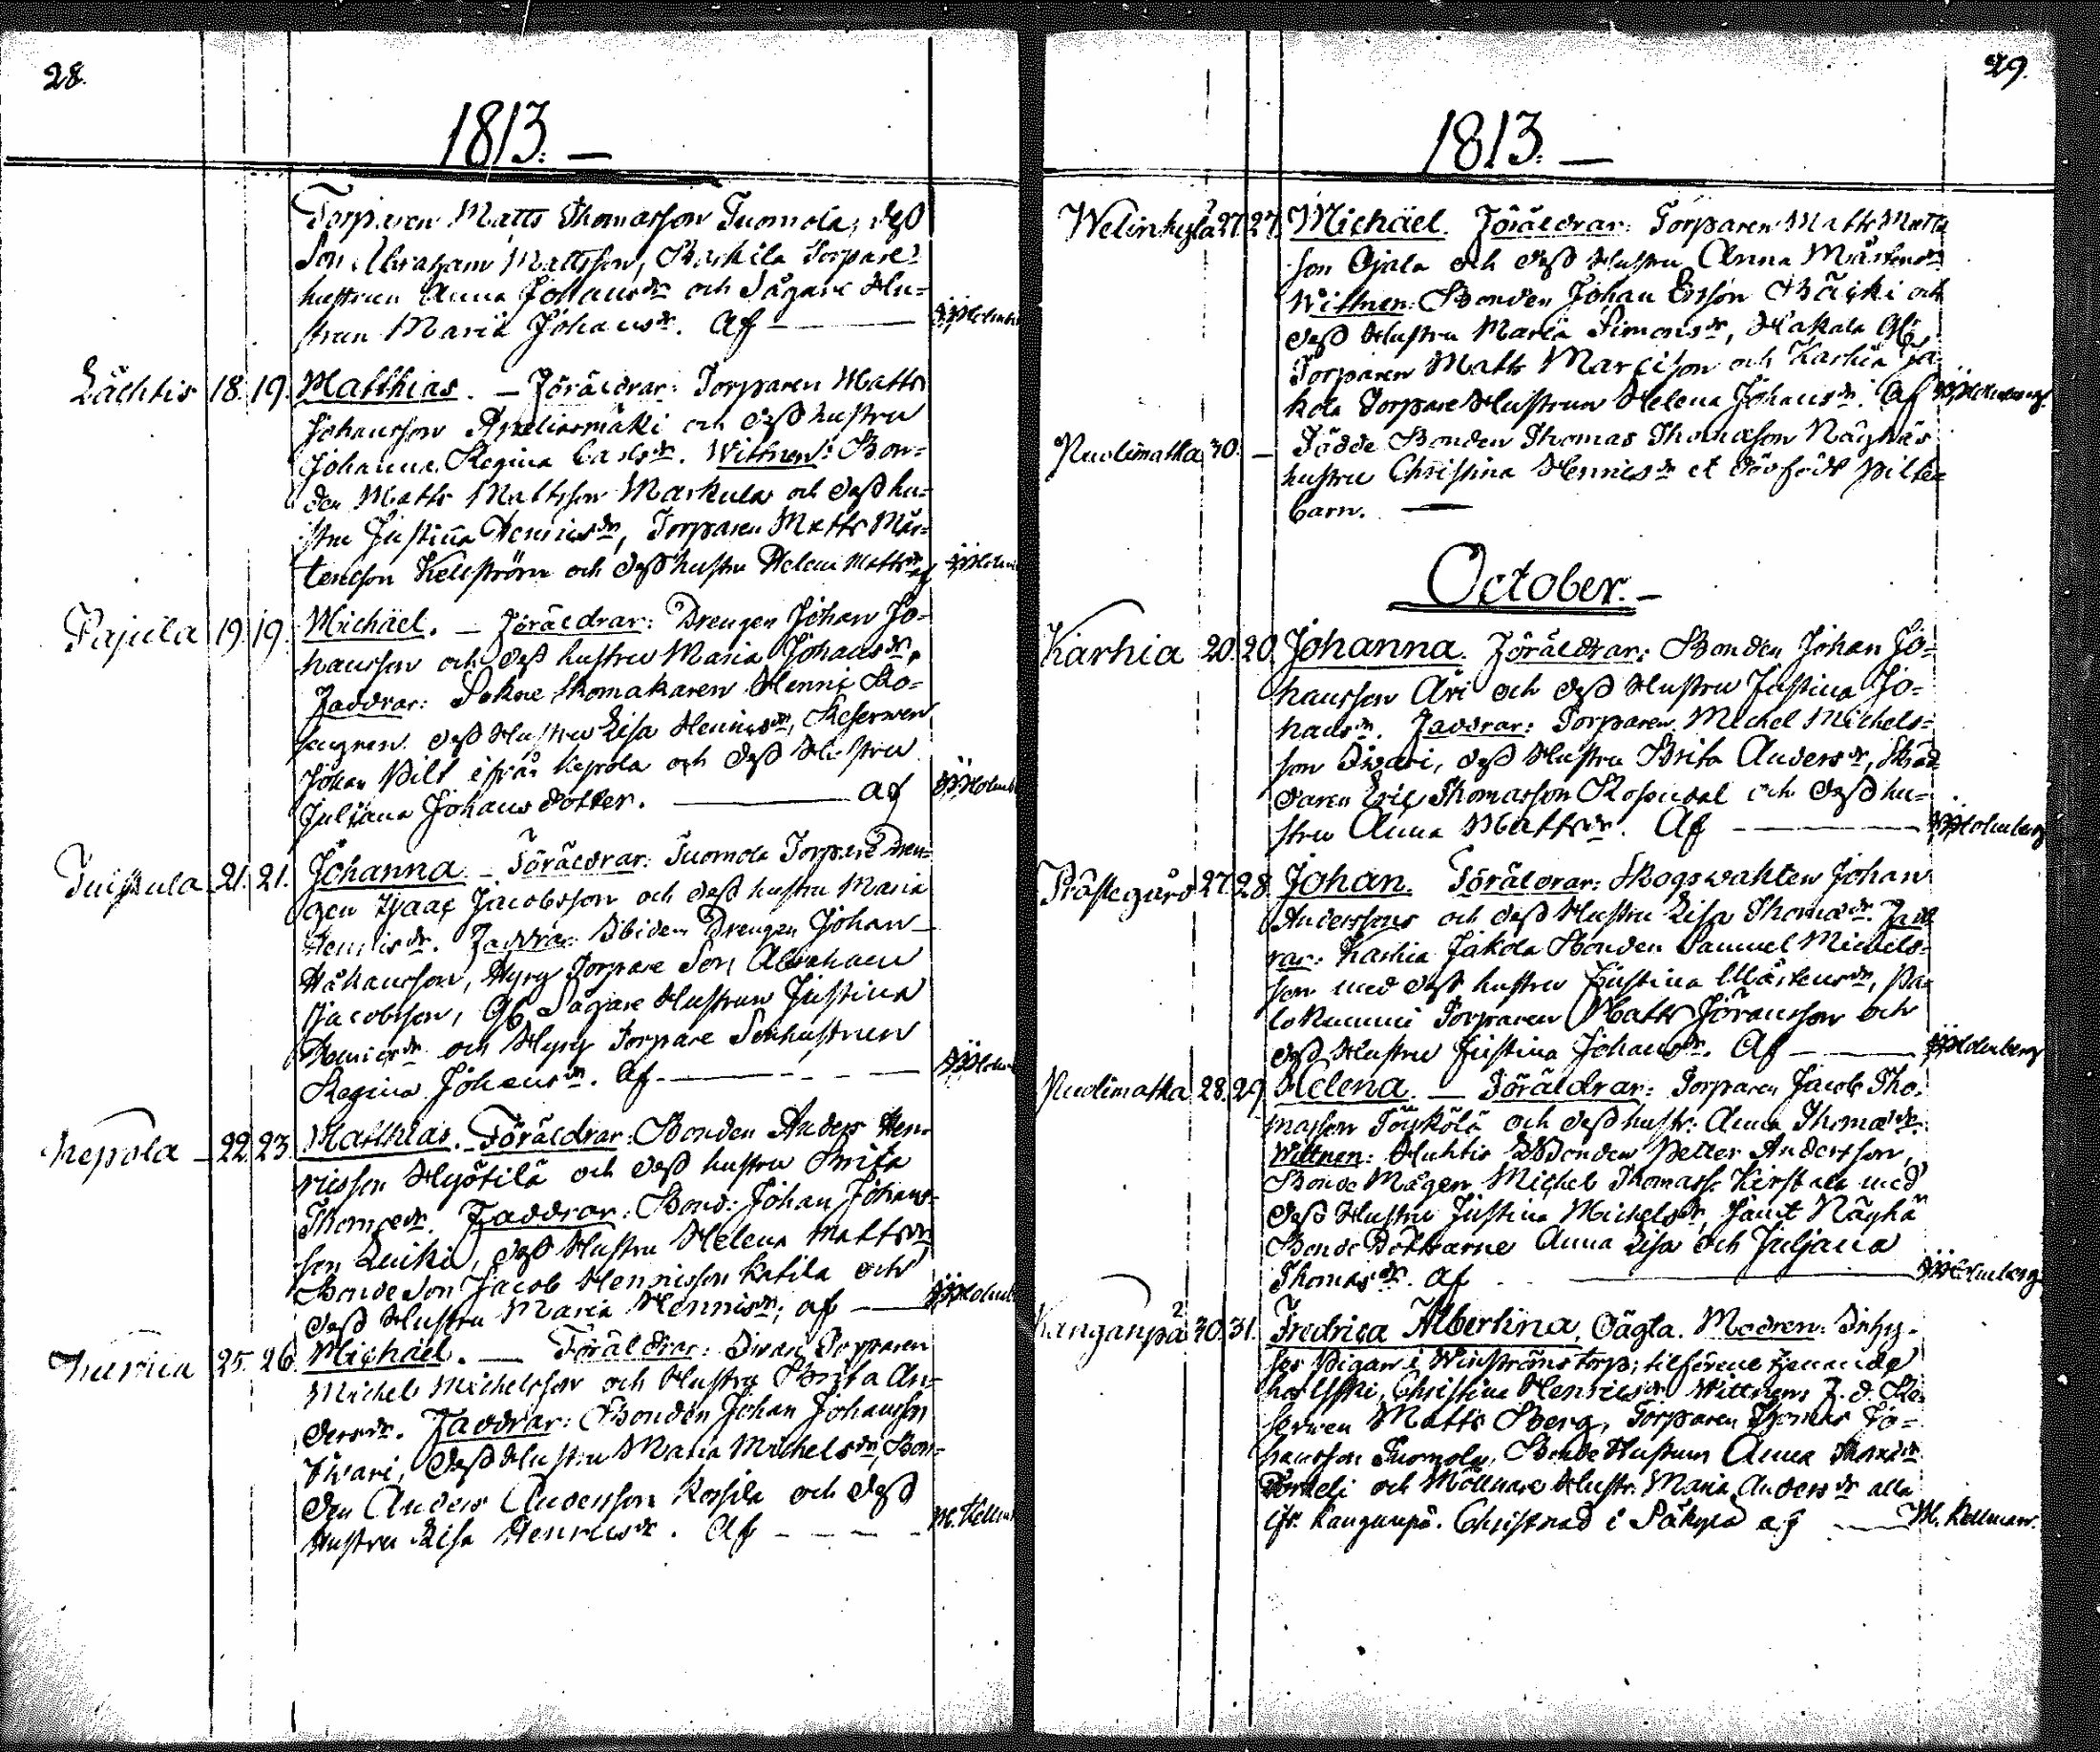 28.
1813. —
Torparen Matts Thomasson Tuomola, dess
Son Abraham Mattsson, Torpare
hustrun Anna Johansdr och Sågare Hu=
strun Maria Johansdr. Af —
Lächtis 18. 19. Matthias. — Föräldrar: Torparen Matts
Johansson och dess hustru
Johanna Regina Carlsdr. Wittnen: Bon=
den Matts Mattsson Markula och dess hu=
stru Justina Henricsdr, Torparen Matts Mår=
tensson Kellström och dess hustru Helena Mattsdr af
Pajula 19. 19. Michäel. — Föräldrar: Drengen Johan Jo=
hansson och dess hustru Maria Johansdr.
Faddrar: Sokne Skomakaren Henric
dess Hustru Lisa Henricsdr, Reserven
Johan Pilt ifrån Kepola och dess Hustru
Juliana Johansdotter. — af
21. 21. Johanna. — Föräldrar: Tuomola Torpare Dren=
gen Isaac Jacobsson och dess hustru Maria
Henricsdr. Faddrar: Ibidem Drengen Johan
Håkansson, Hyry Torpare Son Abraham
Jacobsson, Sågare Hustrun Justina
Henricsdr och Hyry Torpare Sonhustrun
Regina Johansdr. Af —
Kepola — 22. 23. Matthias. Föräldrar: Bonden Anders Hen=
ricsson Hyötilä och dess hustru Brita
Thomædr. Faddrar: Bond: Johan Johans=
son, dess Hustru Helena Mattsdr
Bonde Son Jacob Henricsson Katila och
dess Hustru Maria Henricsdr, af —
25. 26. Michäel. — Föräldrar: Iwari Torparen
Michel Michelsson och Hustru Brita An=
dersdr. Faddrar: Bonden Johan Johansson
Iwari, dess Hustru Maria Michelsdr, Bon=
den Anders Andersson Kossila och dess
Hustru Lisa Henricsdr. Af — M. Kellman
29.
1813. —
Welinkylä 27. 27. Michäel. Föräldrar: Torparen Matts Matts
son Ojala och dess Hustru Anna Mårtensdr
Wittnen: Bonden Johan Ersson Bäcki och
dess Hustru Maria Simonsdr, Hakala
Torparen Matts Marcisson och Karhia Ja=
kola Torpare Hustrun Helena Johansdr. Af
Nuolimatka 30. — Födde Bonden Thomas Thomasson Näyhäs
hustru Christina Henricsdr et dödfödt Pilte=
barn. —
October. —
Karhia 20. 20. Johanna. Föräldrar: Bonden Johan Jo=
hansson Äri och dess Hustru Justina Jo=
hansdr. Faddrar: Torparen Michel Michels=
son Iwari, dess Hustru Brita Andersdr, Skräd=
daren Eric Thomasson Rosendal och dess hu=
stru Anna Mattsdr. Af — Holmberg
Prästegård 27. 28. Johan. Föräldrar: Skogswakten Johan
Andersson och dess Hustru Lisa Thomædr. Fadd
rar: Karhia Jakola Bonden Samuel Michels=
son med dess hustru Justina Mårtensdr, Pa=
lokunni Torparen Matts Jöransson och
dess Hustru Justina Johansdr. Af — Holmberg
Nuolimatka 28. 29. Helena. — Föräldrar: Torparen Jacob Tho=
masson Töykälä och dess hustr: Anna Thomædr.
Wittnen: Huhtis Bonden Petter Andersson,
Bonde Mågen Michel Thomass: Kirstala med
dess Hustru Justina Michelsdr, samt Näyhä
Bonde Döttrarne Anna Lisa och Juliana
Thomædr. Af — Holmberg
Kanganpä 30. 31. Fredrica Albertina, Oägta. Modren: Inhy=
ses Pigan i Winströms torp, tilförene tjenande
Christina Henricsdr Wittnen: F. d. Re=
serven Matts Berg, Torparen Thomas Jo=
hansson Tuomola, Bonde Hustrun Anna
och Möllnare Hustr: Maria Andersdr alla
ifr: Kanganpä. Christnad i Säkylä af — M. Kellman.